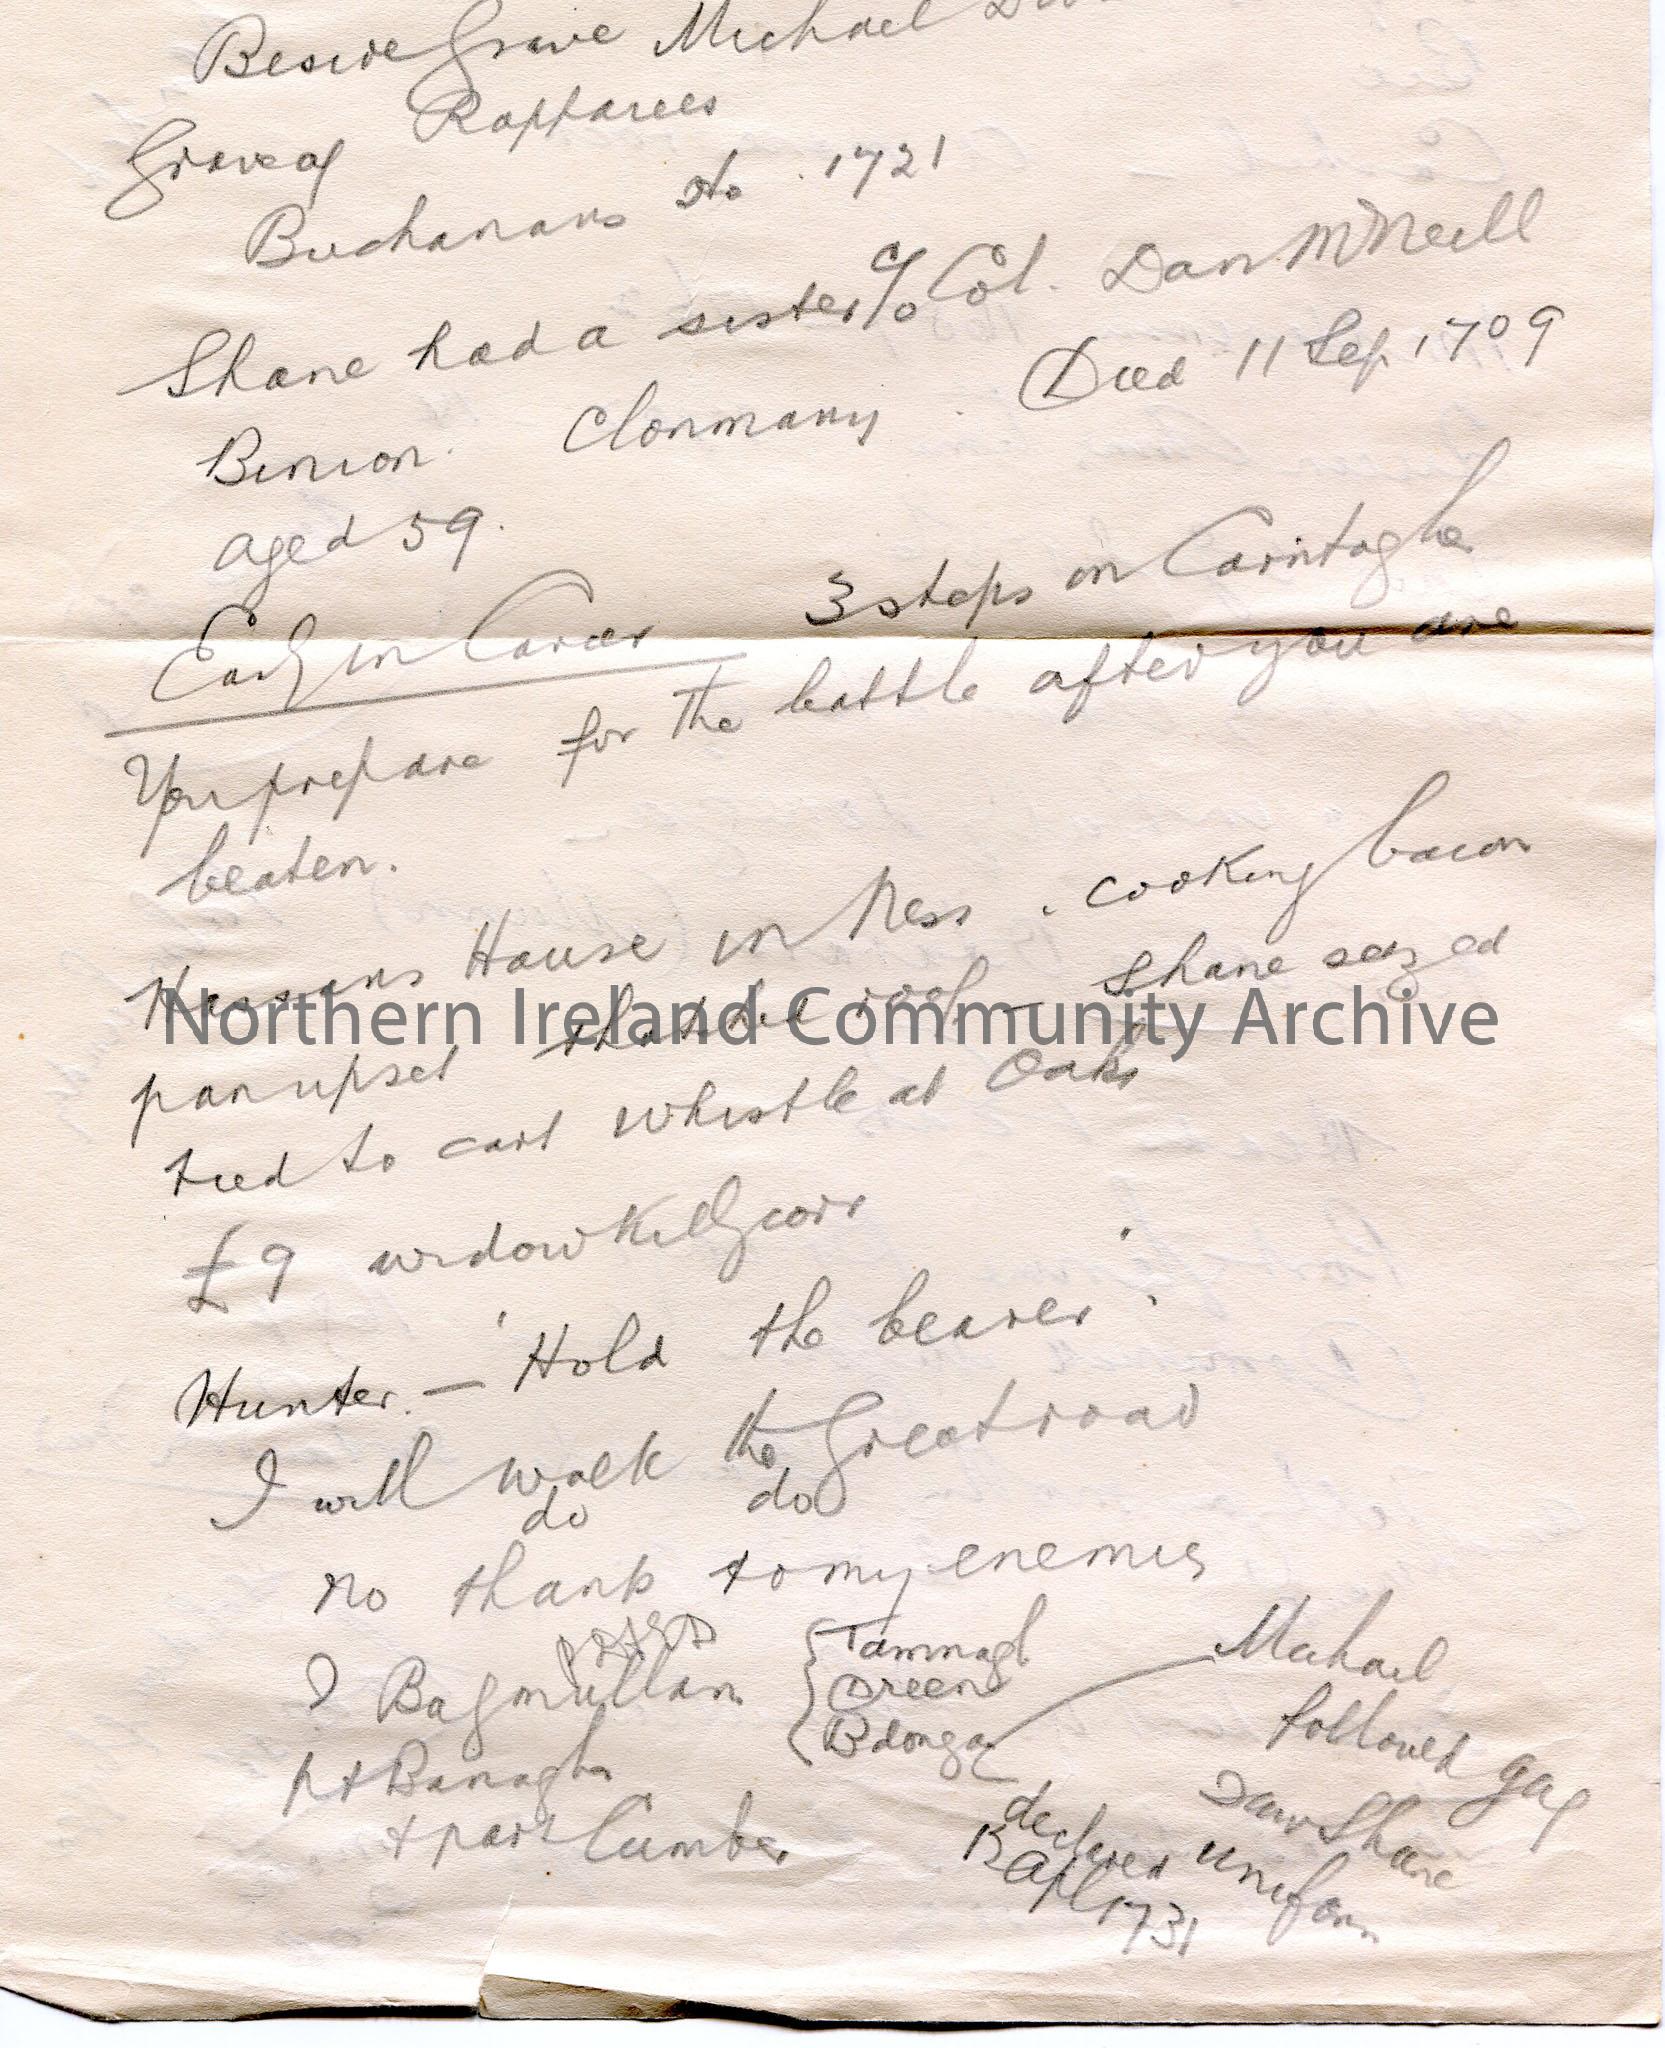 Beside Grave Michael
Grave of Rapparees
Buchanans do . 1721
Shane had a sister c/o Col. Dan McNeill
Binion. Clonmany . Died 11 Sep 1709
aged 59.
Early in Career 3 steps on Carntogher
You prepare for the battle after you are
beaten.
Hassans House in Ness . cooking bacon
pan upset thatched roof – Shane seized
tied to cart whistle at Oaks
£9 widow
Hunter. – 'Hold the bearer'.
I will walk the Great road
do do
no thanks to my enemies
Tamnagh
Dreen
Michael
followed gay
Daw Shane
uniform
pt Banagher
+ part Cumber
Apl 1731
Northern Ireland Community Archive